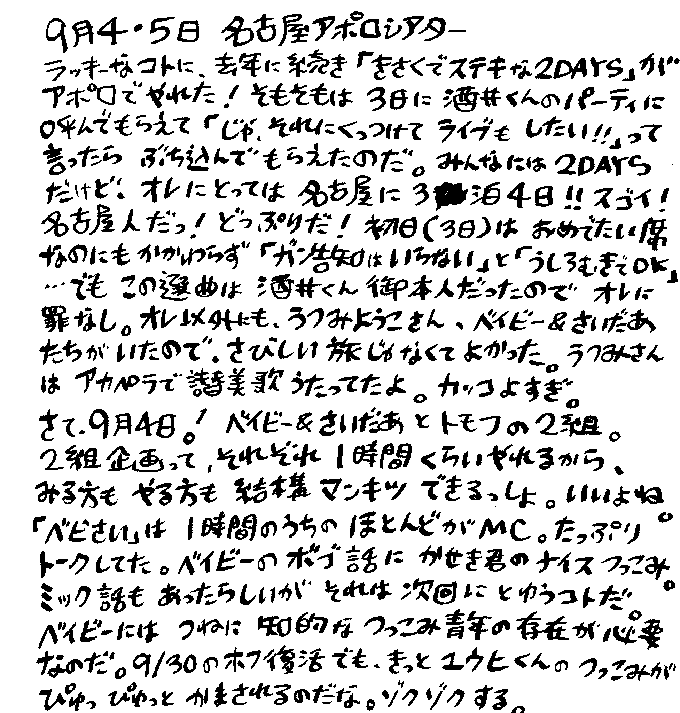 9月4・5日 名古屋アポロシアター
ラッキーなコトに、去年に続き「きさくでステキな2DAYS」が
アポロでやれた！そもそもは 3日に 酒井くんのパーティに
呼んでもらえて「じゃ、それにくっつけて ライブも したい!!」って
言ったら ぶち込んでもらえたのだ。みんなには 2DAYS
だけど、オレにとっては 名古屋に 3泊4日!! スゴイ！
名古屋人だっ！どっぷりだ！ 初日(3日)は おめでたい席
なのにもかかわらず「ガン告知はいらない」と「うしろむきでOK」
…でも この選曲は 酒井くん 御本人だったので オレに
罪なし。オレ以外にも、うつみようこさん、ベイビー&さいだあ
たちがいたので、さびしい 旅じゃなくてよかった。うつみさん
は アカペラで 讃美歌 うたってたよ。カッコよすぎ。
さて、9月4日。！ ベイビー&さいだあ と トモフの2組。
2組企画って、それぞれ 1時間くらいやれるから、
みる方も やる方も 結構 マンキツ できるっしょ。いいよね。
「ベビさい」は 1時間のうちの ほとんどがMC。たっぷり
トークしてた。ベイビーの ボゴ話に かせき君の ナイスつっこみ。
ミック話も あったらしいが それは 次回に とゆうコトだ。
ベイビーには つねに 知的な つっこみ青年の 存在が 必要
なのだ。9/30のホフ復活でも、きっと ユウヒくんの つっこみが
ぴゅっ ぴゅっと かまされるのだな。ゾクゾクする。